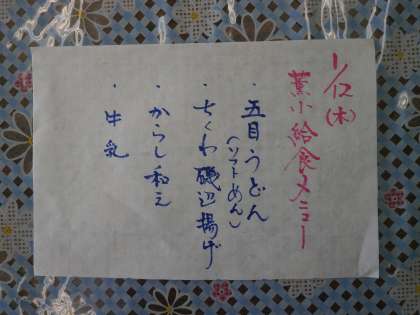 1/12(木)
薫小給食メニュー
・五目うどん
(ソフトめん)
・ちくわ磯辺揚げ
・からし和え
・牛乳